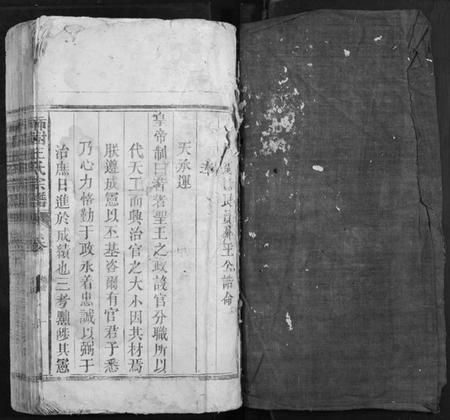 王公誥命
奉
天承運
皇帝制曰昔者聖王之政設官分職所以
代天工而興治官之大小因其材焉
朕遵成憲以丕基咨爾有官君子悉
乃心力恪勤于政永着忠誠以弼于
治應日進於成績也三考黜陟其憲
王氏宗譜